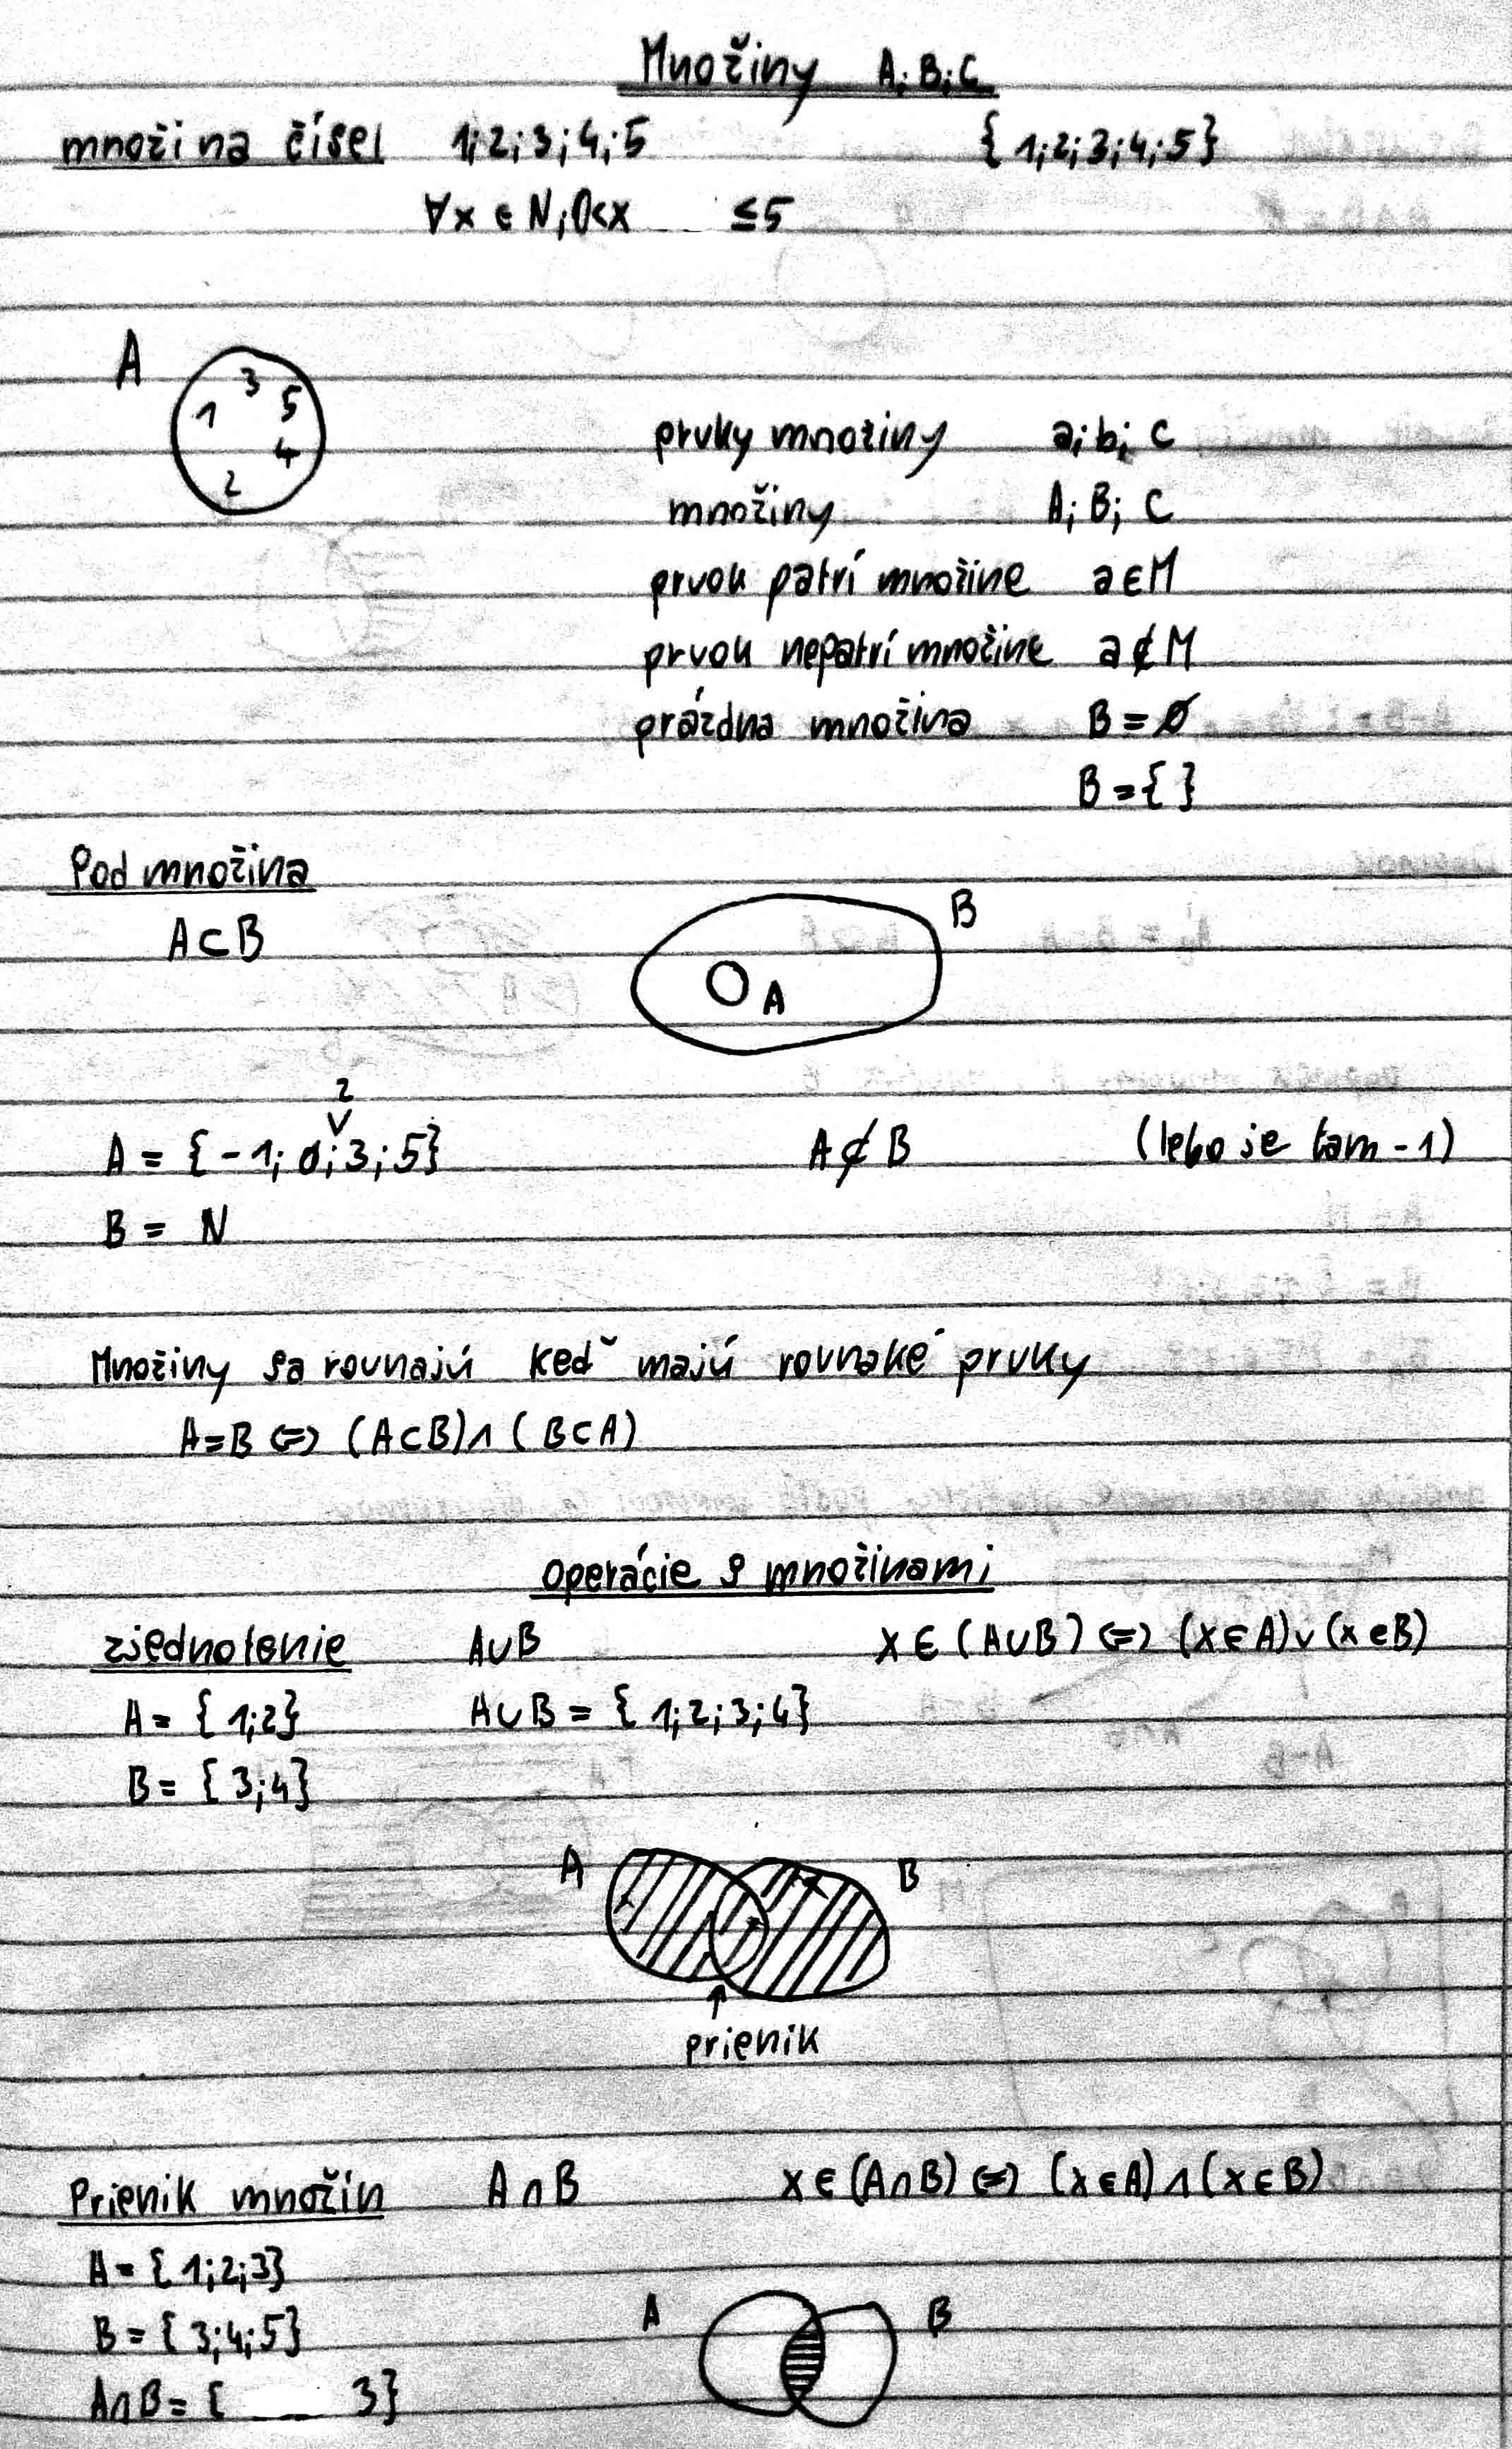 Množiny A;B;C
množina čísel 1;2;3;4;5 {1;2;3;4;5}
∀x ∈ N;0<x ≤5
A
3
1 5
4
2
prvky množiny a;b;c
množiny A;B;C
prvok patrí množine a∈M
prvok nepatrí množine a∉M
prázdna množina B=∅
B={ }
Podmnožina
A⊂B
B
A
2
∨
A = {-1;0;3;5} A⊄B (lebo je tam -1)
B = N
Množiny sa rovnajú keď majú rovnaké prvky
A=B ⇔ (A⊂B)∧(B⊂A)
Operácie s množinami
zjednotenie A∪B x∈(A∪B) ⇔ (x∈A)∨(x∈B)
A = {1;2} A∪B = {1;2;3;4}
B = {3;4}
A B
prienik
Prienik množín A∩B x∈(A∩B) ⇔ (x∈A)∧(x∈B)
A = {1;2;3}
B = {3;4;5}
A B
A∩B = { 3}